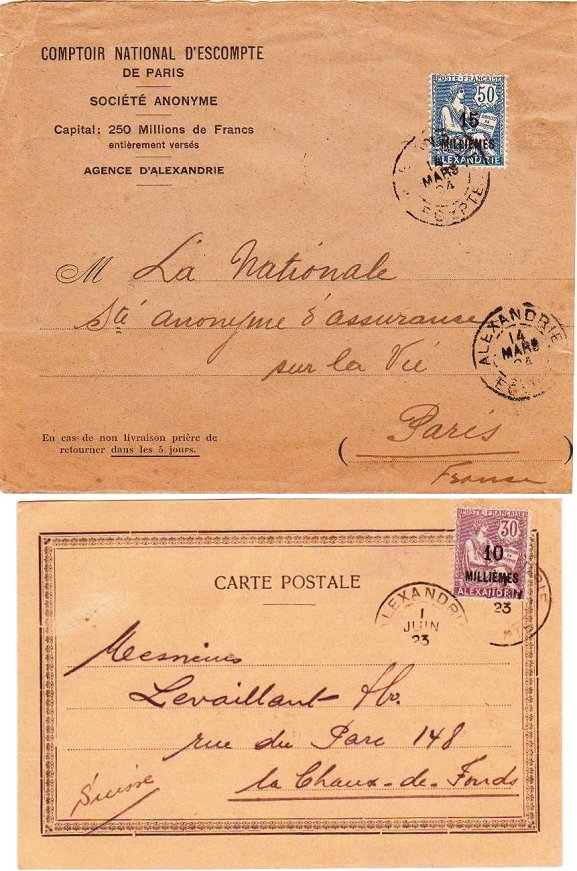 COMPTOIR NATIONAL D'ESCOMPTE
DE PARIS
SOCIÉTÉ ANONYME
Capital: 250 Millions de Francs
entièrement versés
AGENCE D'ALEXANDRIE
POSTE FRANÇAISE
50
15
MILLIÈMES
ALEXANDRIE
14
MARS
24
EGYPTE
M La Nationale
Sté anonyme d'assurance
sur la Vie
Paris
France
ALEXANDRIE
14
MARS
24
En cas de non livraison prière de
retourner dans les 5 jours.
POSTE FRANÇAISE
30
10
MILLIÈMES
ALEXANDRIE
23
CARTE POSTALE
ALEXANDRIE
1
JUIN
23
Messieurs
Levaillant &
rue du Parc 148
la Chaux-de-Fonds
Suisse